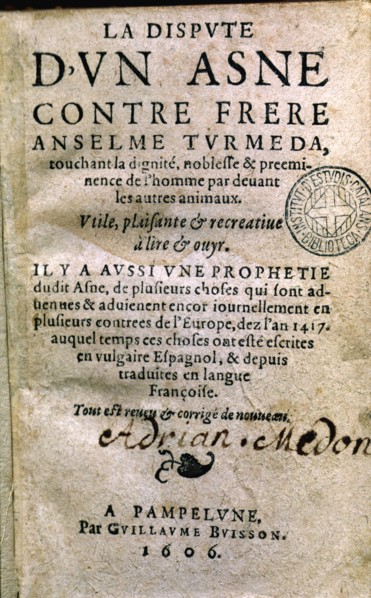 LA DISPVTE
D'VN ASNE
CONTRE FRERE
ANSELME TVRMEDA,
touchant la dignité, noblesse & preemi-
nence de l'homme par deuant
les autres animaux.
Vtile, plaisante & recreatiue
à lire & ouyr.
IL Y A AVSSI VNE PROPHETIE
dudit Asne, de plusieurs choses qui sont ad-
uenues & aduienent encor iournellement en
plusieurs contrees de l'Europe, dez l'an 1417.
auquel temps ces choses ont esté escrites
en vulgaire Espagnol, & depuis
traduites en langue
Françoise.
Tout est reueu & corrigé de nouueau.
Adrian. Medon
A PAMPELVNE,
Par GVILLAVME BVISSON.
1606.
INSTITUT D'ESTUDIS CATALANS
BIBLIOTECA